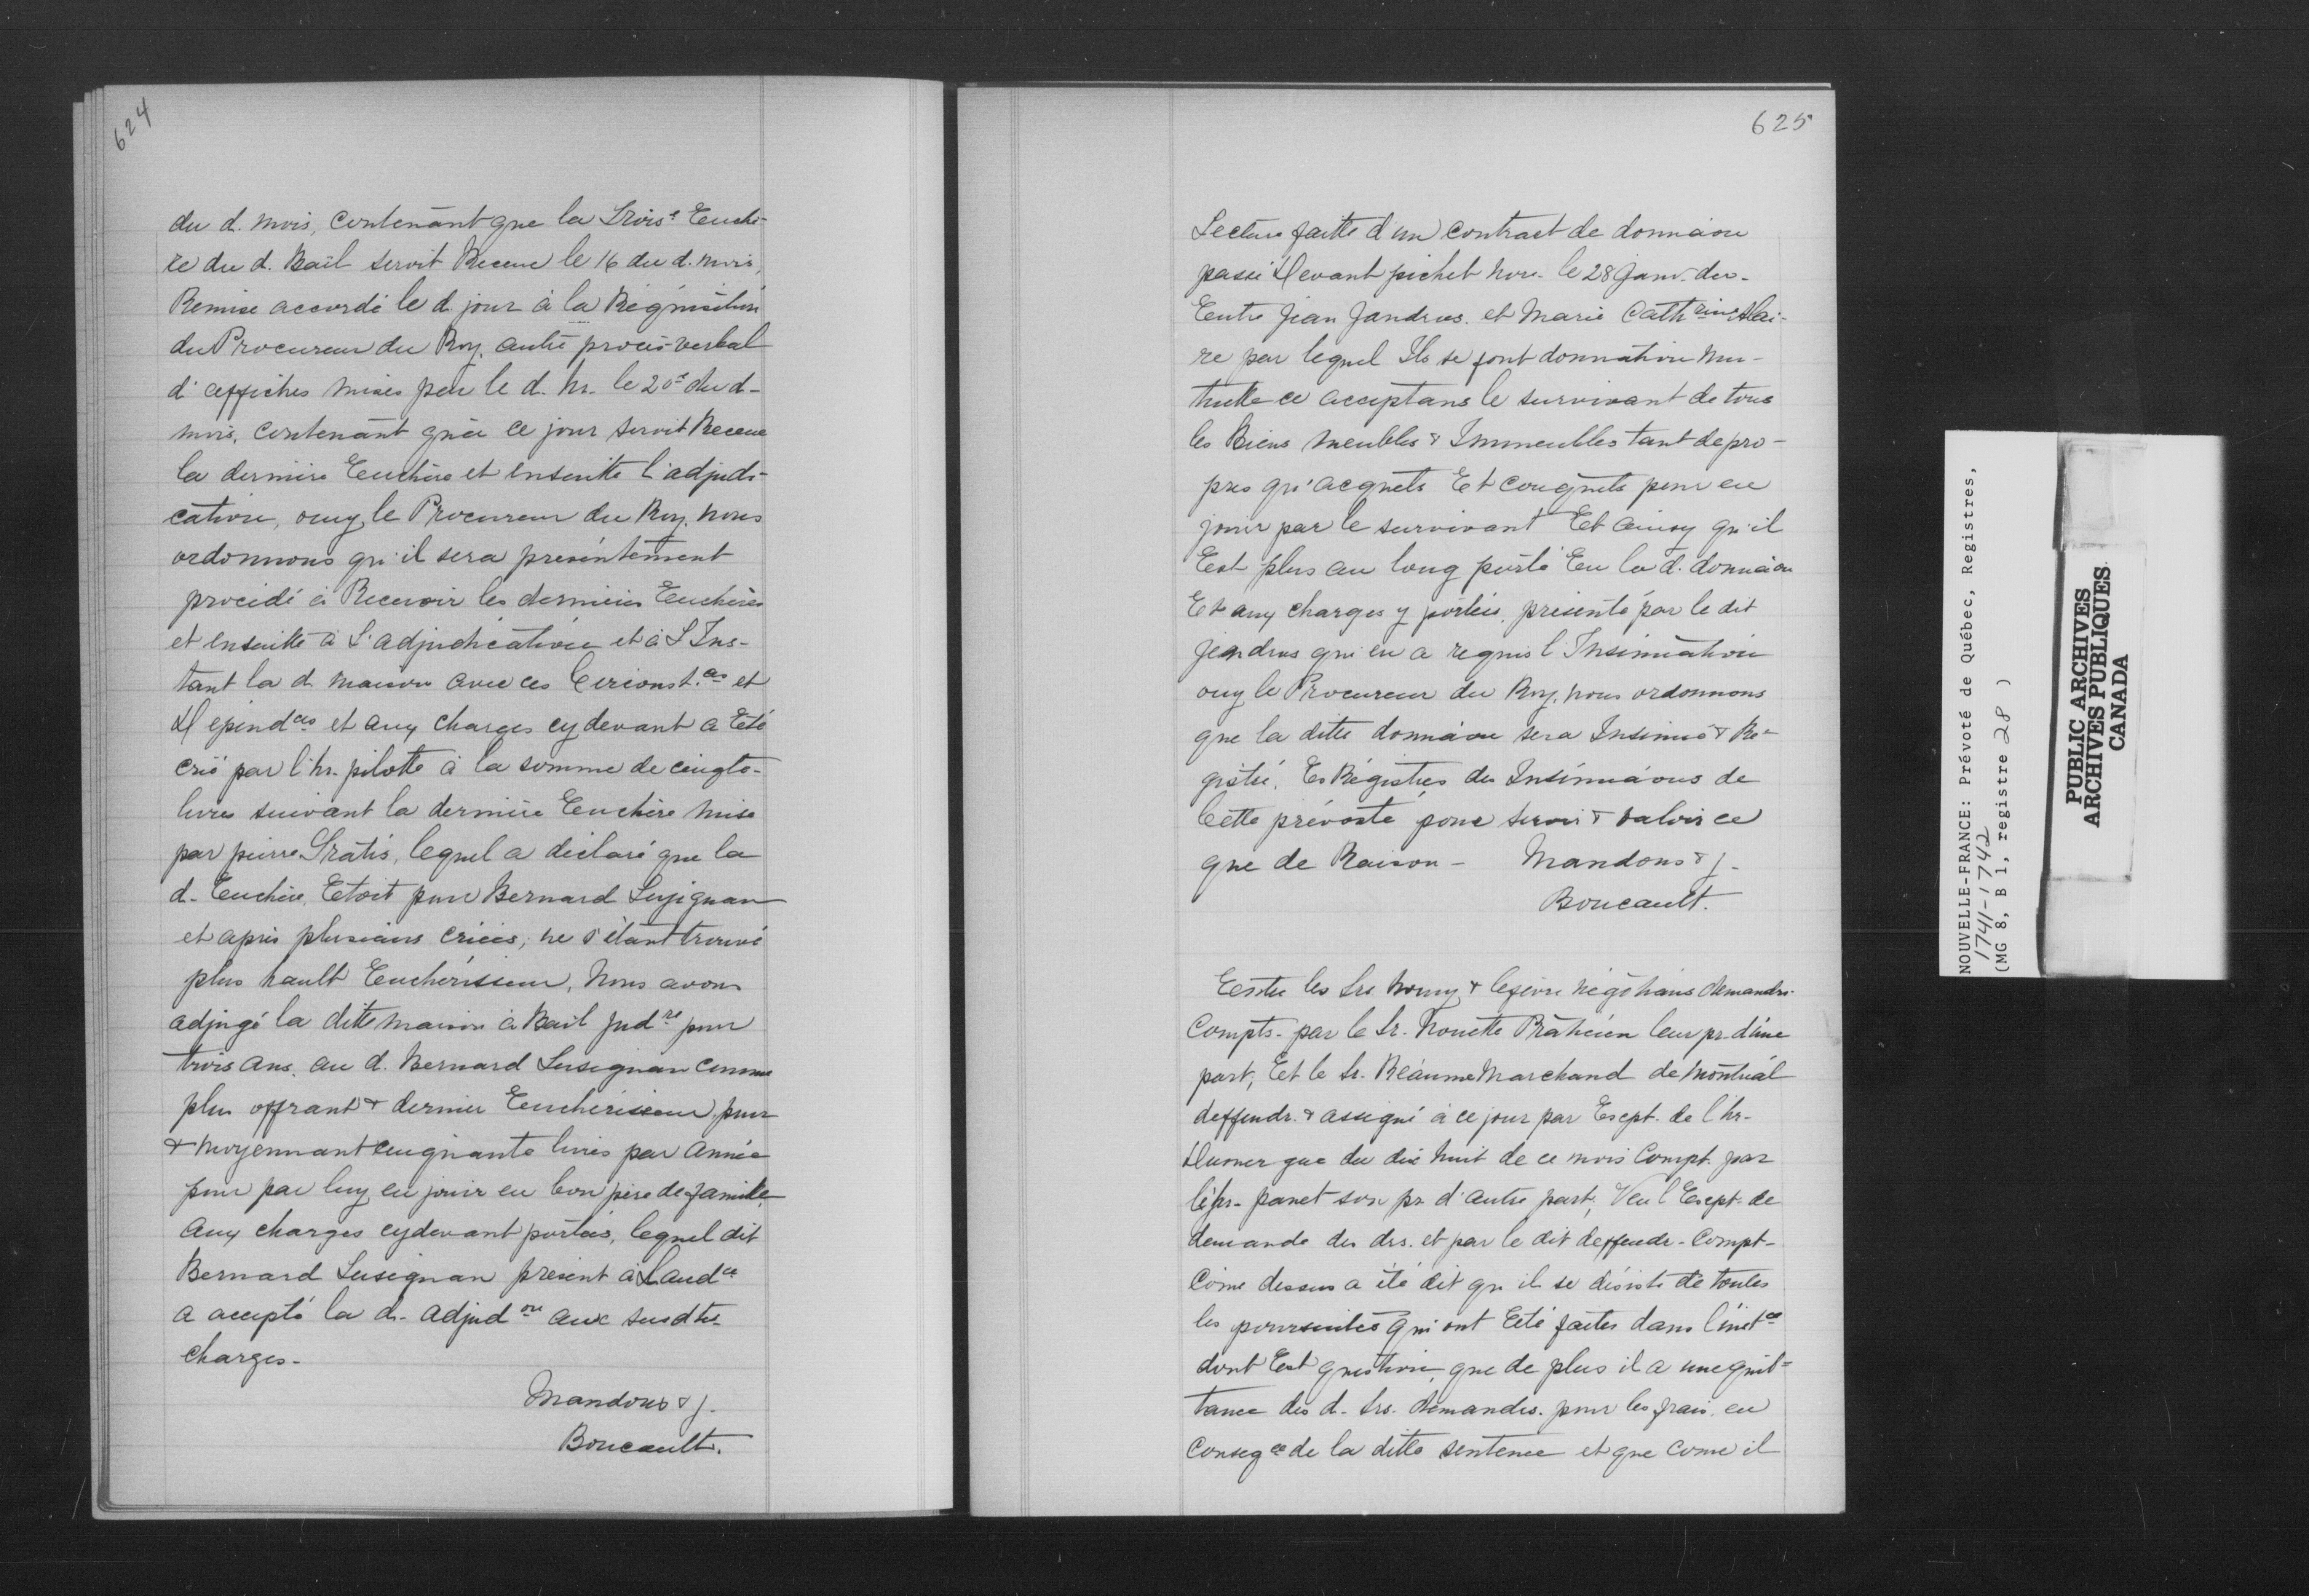 624
du d. mois, contenant que la Trois.e Enché-
re du d. Bail seroit Receue le 16 du d. mois,
Remise accordé le d. jour à la Réquisition
du Procureur du Roy, autre procès-verbal
d'affiches mises par le d. hr. le 20e du d-
mois, contenant qu'à ce jour seroit Receue
la dernière Enchère et ensuitte l'adjudi-
cation, ouy, le Procureur du Roy, nous
ordonnons qu'il sera presentement
procédé à Recevoir les dernières Enchères
et ensuitte à L'adjudication et à L'Ins-
tant la d. maison avec ces Circonst.ces et
Dépendces et aux charges cy devant a Eté
crié par l'hr. pilotte à la somme de cinqte-
livres suivant la dernière Enchère mise
par pierre Gratis, lequel a déclaré que la
d- Enchère, Etoit pour Bernard Lusignan
et après plusieurs criées, ne s'étant trouvé
plus hault Enchérisseur, Nous avons
adjugé la ditte maison à Bail Judre pour
trois ans, au d. Bernard Lusignan comme
plus offrant & dernier Enchérisseur, pour
& moyennant cinquante livres par année
pour par luy en jouir en bon père de famille,
aux charges cydevant portées, lequel dit
Bernard Lusignan présent à L'audce
a accepté la d- adjudon aux susdtes
charges-
Mandons & J.
Boucault.
625
Lecture faitte d'un contract de donnaion
passé Devant pichet nore. le 28 Janv. der-
Entre Jean Jandros et Marie Cathrine Alai-
re par lequel Ils se font donnation mu-
tuelle ce acceptans le survivant de tous
les Biens meubles & Immeubles tant de pro-
pres qu'acquets Et conquets pour en
jouir par le survivant Et ainsy qu'il
Est plus au long porté En la d. donnaion
Et aux charges y portées, présenté par le dit
Jendros qui en a requis l'Insinuation
ouy le Procureur du Roy, nous ordonnons
que la ditte donnaion sera Insinué & Re-
gistré, Es Régistres des Insinuaons de
Cette prévosté pour servir & valoir ce
que de Raison- Mandons & J.
Boucault.
Entre les Srs houry & lefevre négotians demandrs.
Compts- par le Sr. Nouette Praticien leur pr. d'une
part, Et le Sr. Réaume Marchand de Montréal
deffendr. & assigné à ce jour parExpt. de l'hr-
Ducner gue du dix huit de ce mois Compt. par
l'hr- panet son pr. d'autre part, Veu l'Expt. de
demande des drs. et par le dit deffendr- Compt-
Côme dessus a été dit qu'il se désiste de toutes
les poursuites qui ont Eté faites dans l'instce
dont Est question, que de plus il a une quit-
tance des d- Srs. demandrs. pour les frais, en
conseqce de la ditte sentence et que come il
NOUVELLE-FRANCE: Prévoté de Québec, Registres,
1741-1742
(MG 8, B 1, registre 28 )
PUBLIC ARCHIVES
ARCHIVES PUBLIQUES
CANADA